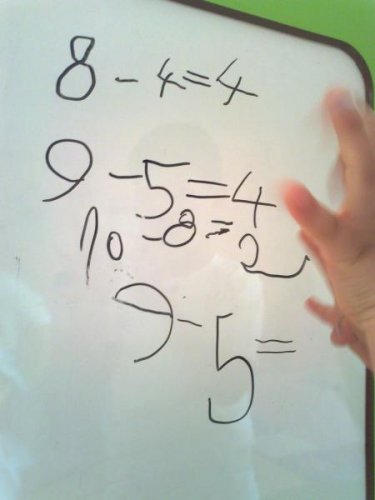 8 - 4 = 4
9 - 5 = 4
10 - 8 = 2
9 - 5 =